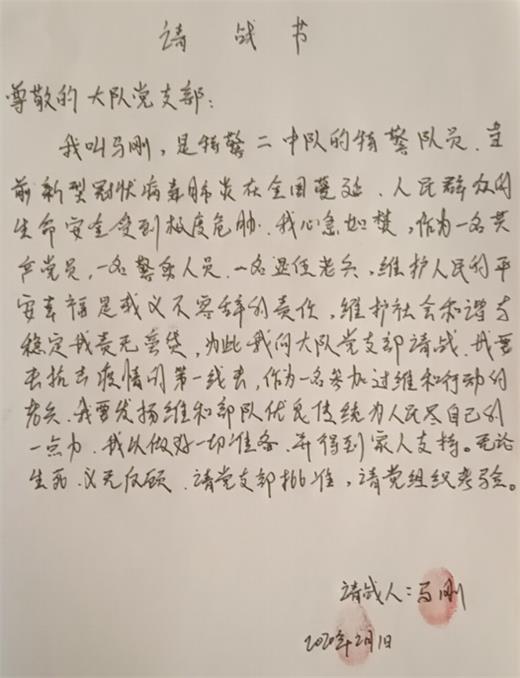 请战书
尊敬的大队党支部：
我叫马刚，是特警二中队的特警队员．当
前新型冠状病毒肺炎在全国蔓延．人民群众的
生命安全受到极度危胁．我心急如焚，作为一名共
产党员，一名警务人员．一名退伍老兵，维护人民的平
安幸福是我义不容辞的责任，维护社会和谐与
稳定我责无旁贷，为此我向大队党支部请战．我要
去抗击疫情的第一线去，作为一名参加过维和行动的
老兵．我要发扬维和部队优良传统为人民尽自己的
一点力．我以做好一切准备．并得到家人支持。无论
生死．义无反顾．请党支部批准，请党组织考验。
请战人：马刚
2020年2月1日